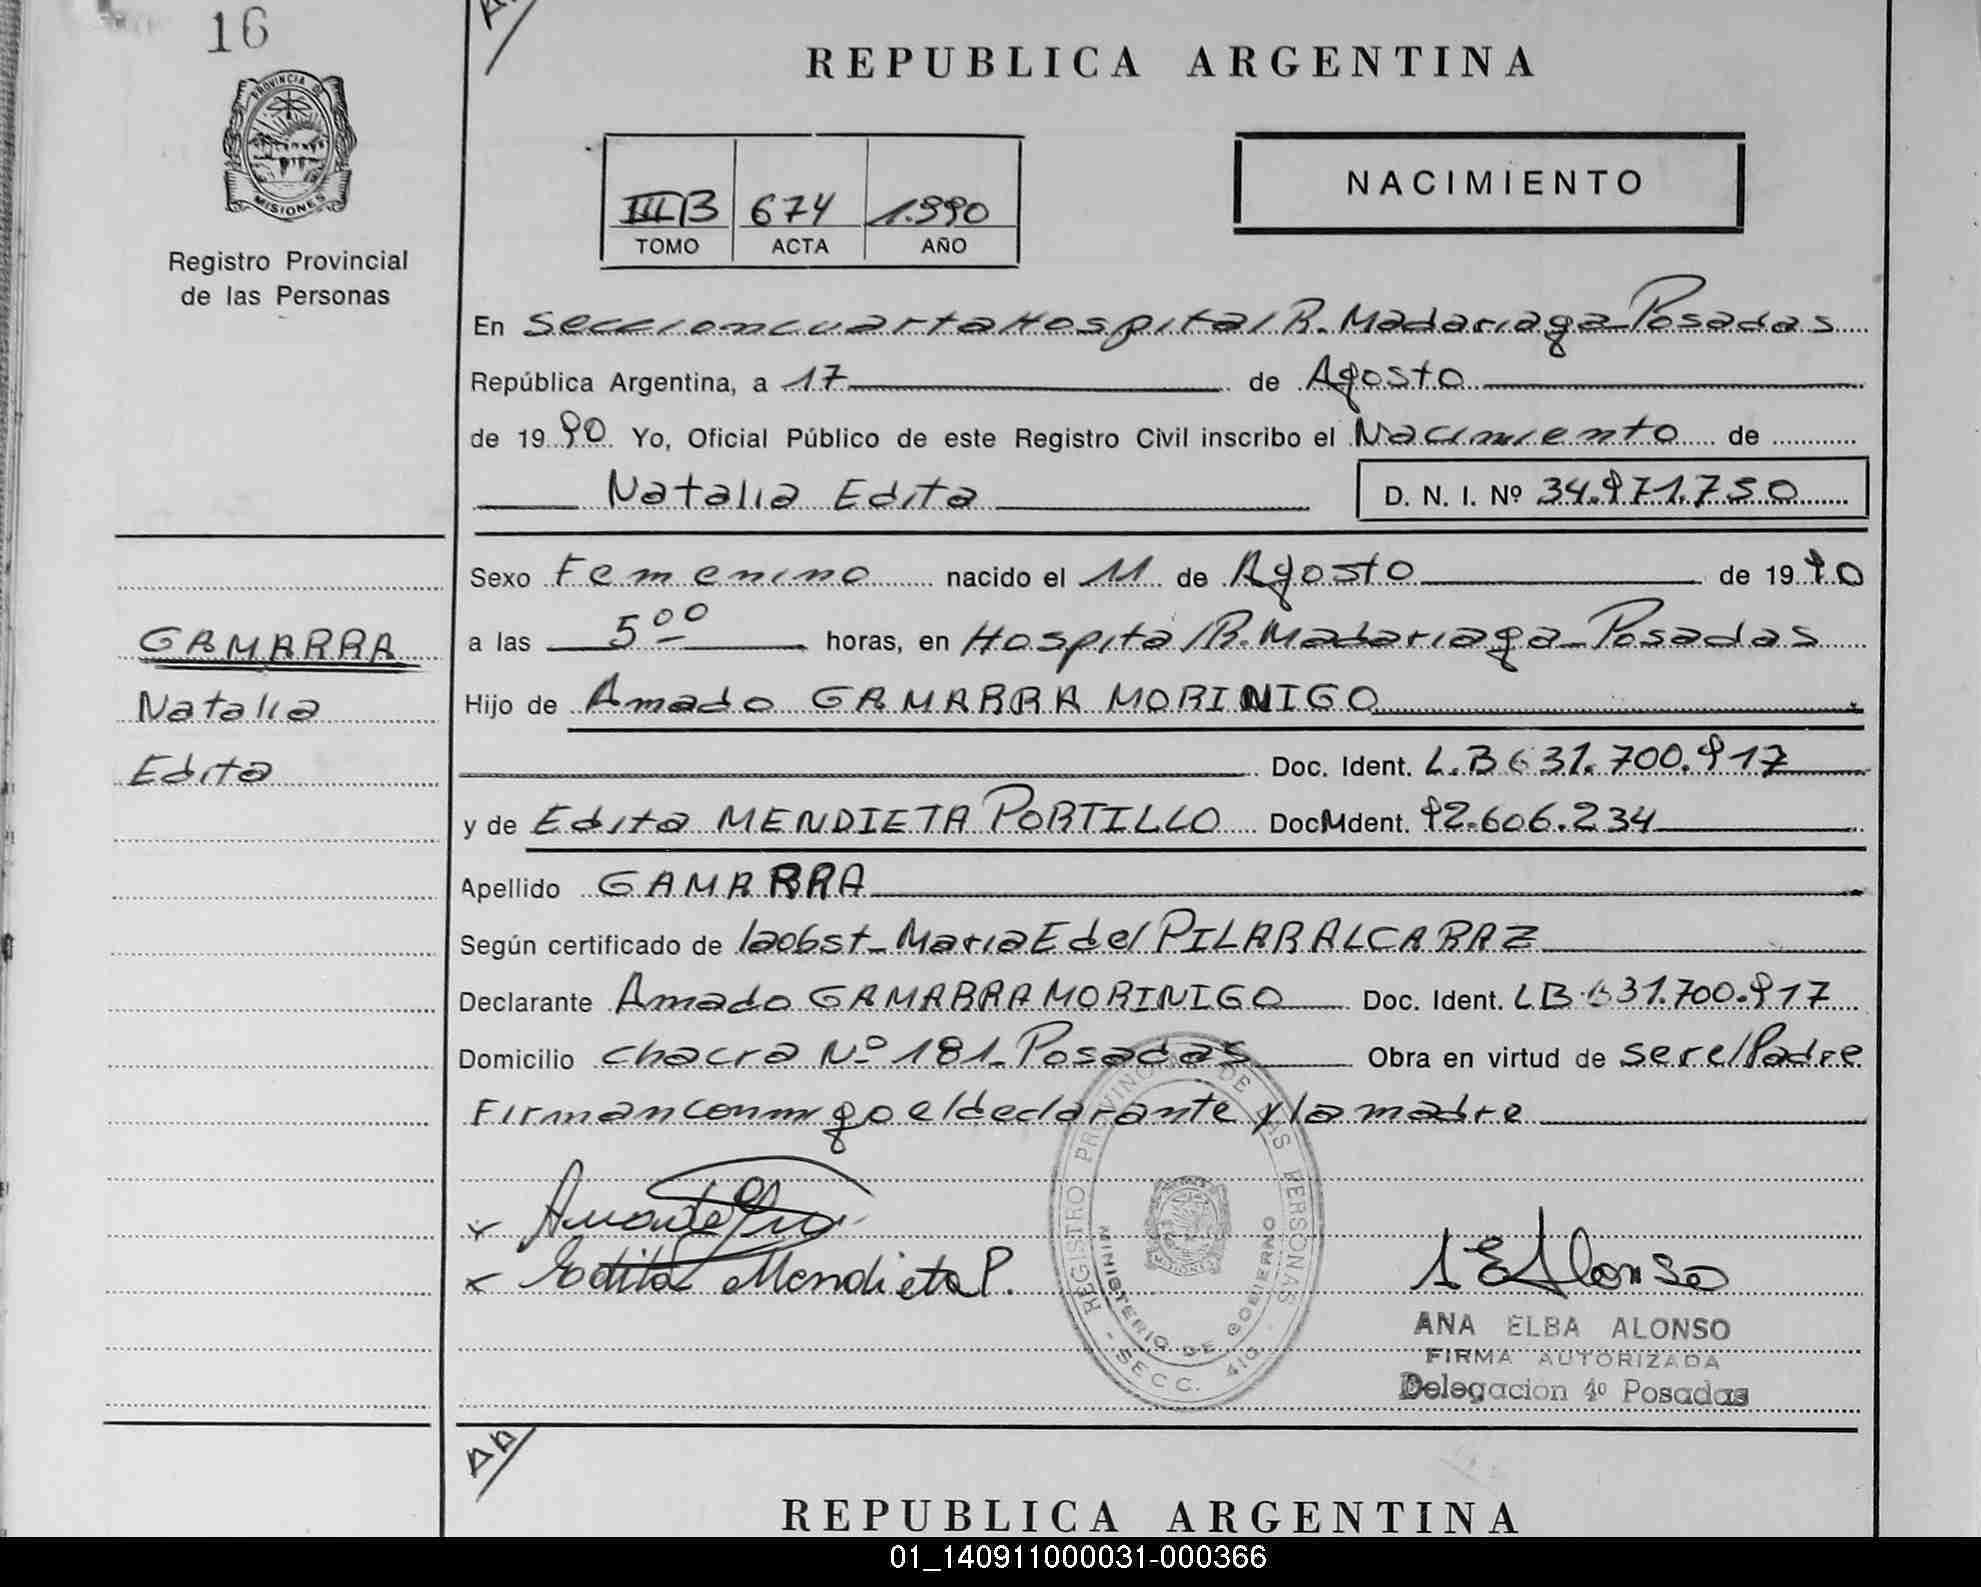 16
PROVINCIA DE
MISIONES
Registro Provincial
de las Personas
REPUBLICA ARGENTINA
III B 674 1.990
TOMO ACTA AÑO
NACIMIENTO
En Seccion cuarta Hospital R. Madariaga - Posadas
República Argentina, a 17 de Agosto
de 1990. Yo, Oficial Público de este Registro Civil inscribo el Nacimiento de
Natalia Edita D. N. I. Nº 34.971.750
Sexo Femenino nacido el 11 de Agosto de 1990
a las 5 00 horas, en Hospital R. Madariaga - Posadas
Hijo de Amado GAMARRA MORINIGO
Doc. Ident. L.B 631.700.917
y de Edita MENDIETA PORTILLO Doc. Ident. 92.606.234
Apellido GAMARRA
Según certificado de la obst - Maria E del PILAR ALCARAZ
Declarante Amado GAMARRA MORINIGO Doc. Ident. LB 631.700.917
Domicilio chacra Nº 181 - Posadas Obra en virtud de ser el Padre
Firman conmigo el declarante y la madre
GAMARRA
Natalia
Edita
Edita Mendieta P.
REGISTRO PROVINCIAL DE LAS PERSONAS
MINISTERIO DE GOBIERNO
- SECC. 4ta -
A E Alonso
ANA ELBA ALONSO
FIRMA AUTORIZADA
Delegacion 4º Posadas
REPUBLICA ARGENTINA
01_140911000031-000366